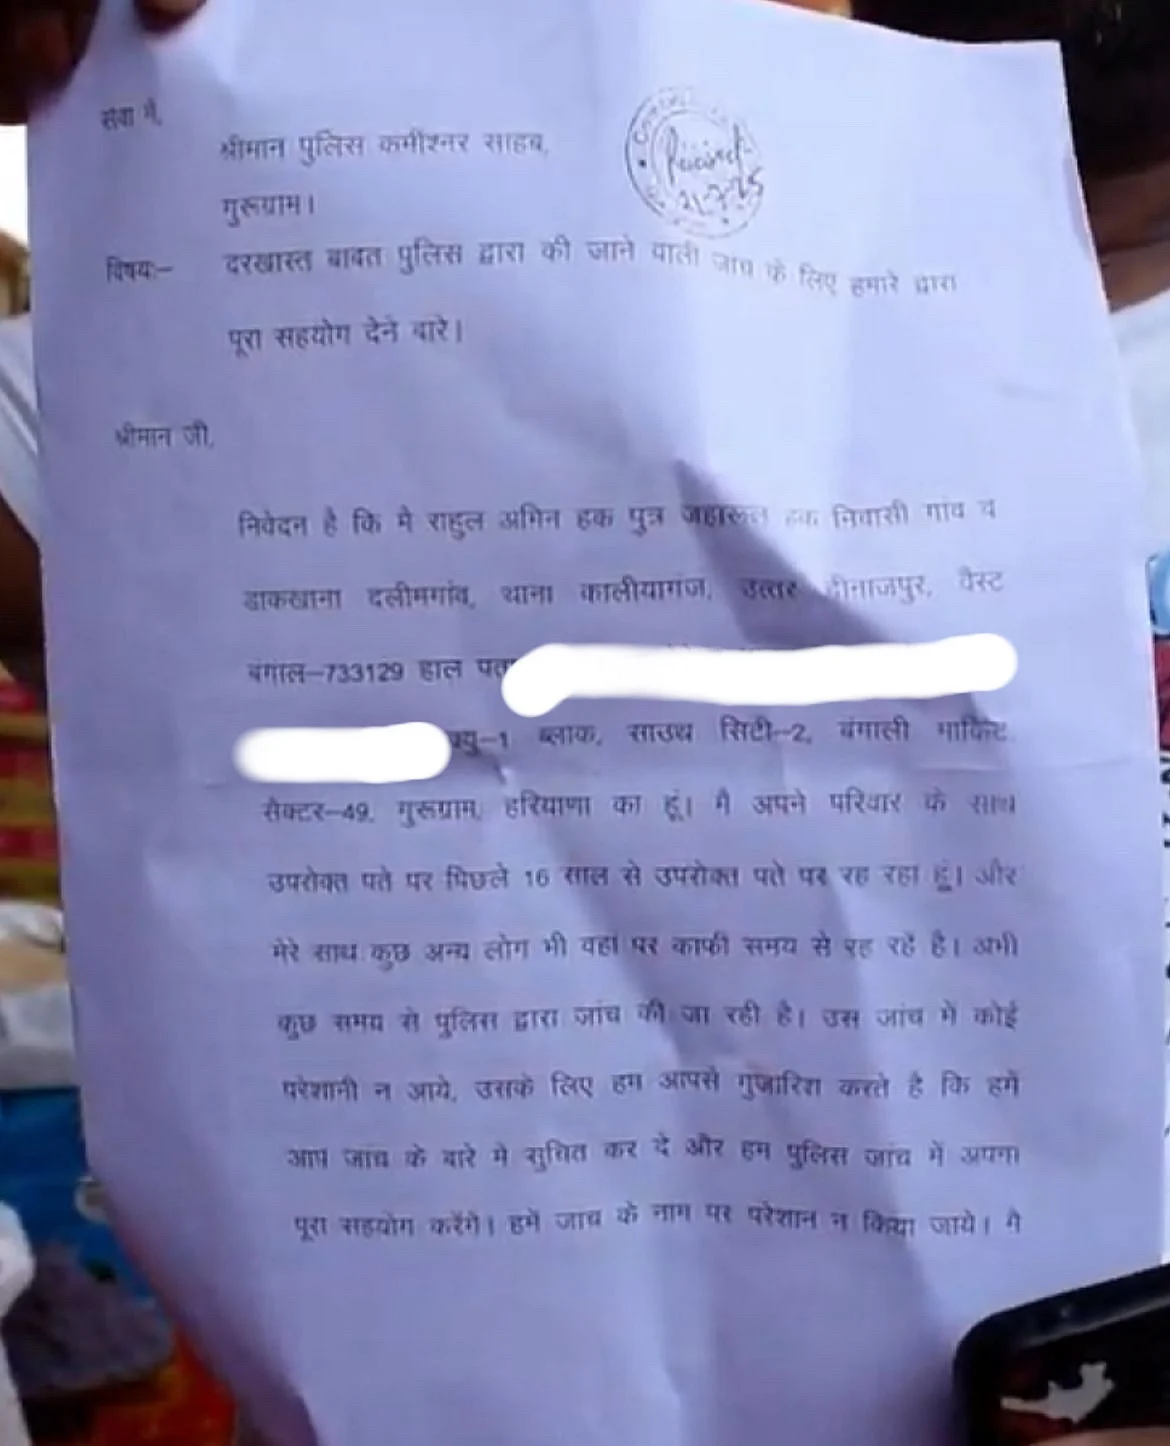 सेवा में,
श्रीमान पुलिस कमीश्नर साहब,
Received
21-7-25
गुरूग्राम।
विषयः– दरखास्त बाबत पुलिस द्वारा की जाने वाली जाच के लिए हमारे द्वारा
पूरा सहयोग देने बारे।
श्रीमान जी,
निवेदन है कि मे राहुल अमिन हक पुत्र हक निवासी गांव व
डाकखाना दलीमगांव, थाना कालीयागंज, उत्तर दीनाजपुर, वैस्ट
बंगाल–733129 हाल पता
क्यु–1 ब्लाक, साउथ सिटी–2, बंगाली मार्किट
सैक्टर–49, गुरूग्राम, हरियाणा का हूं। मै अपने परिवार के साथ
उपरोक्त पते पर पिछले 16 साल से उपरोक्त पते पर रह रहा हूं। और
मेरे साथ कुछ अन्य लोग भी वहां पर काफी समय से रह रहें है। अभी
कुछ समय से पुलिस द्वारा जांच की जा रही है। उस जांच में कोई
परेशानी न आये, उसके लिए हम आपसे गुजारिश करते है कि हमें
आप जांच के बारे मे सुचित कर दे और हम पुलिस जांच में अपना
पूरा सहयोग करेंगे। हमें जाच के नाम पर परेशान न किया जाये। मै